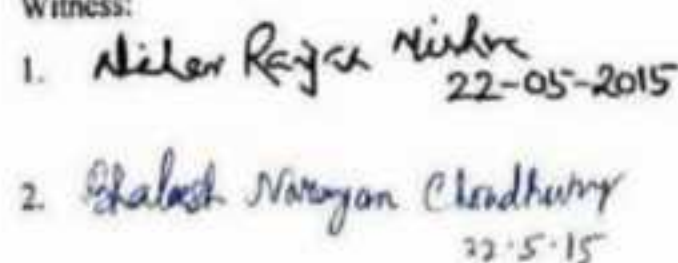 Witness:
1. Niher Ranjan Mishra
22-05-2015
2. Bhalesh Narayan Choudhury
22.5.15